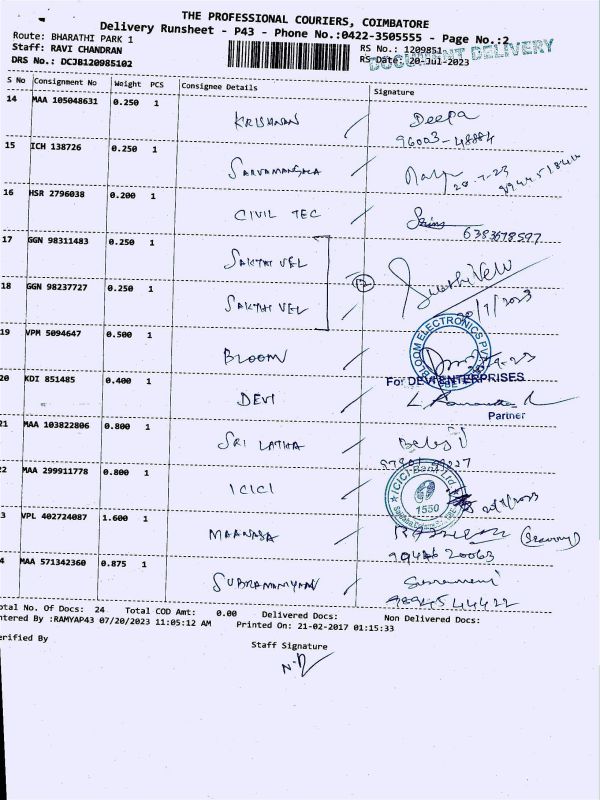 THE PROFESSIONAL COURIERS, COIMBATORE
Delivery Runsheet - P43 - Phone No.:0422-3505555 - Page No.:2
Route: BHARATHI PARK 1
RS No.: 1209851
DOCUMENT DELIVERY
Staff: RAVI CHANDRAN
RS Date: 20-Jul-2023
DRS No.: DCJB120985102
S No Consignment No Weight PCS Consignee Details Signature
14 MAA 105048631 0.250 1
KRISHNAN Deepa
96003-48884
15 ICH 138726 0.250 1
SARVAMANGALA
20-7-23
16 HSR 2796038 0.200 1
CIVIL TEC
6383678597
17 GGN 98311483 0.250 1
SAKTHI VEL
18 GGN 98237727 0.250 1
SAKTHI VEL Sakthi Vel
20/7/2023
19 VPM 5094647 0.500 1
BLOOM
BLOOM ELECTRONICS PVT
For DEVI ENTERPRISES
20 KDI 851485 0.400 1
DEVI
Partner
21 MAA 103822806 0.800 1
SRI LATHA
22 MAA 299911778 0.800 1
ICICI
ICICI Bank Ltd
1550
3 VPL 402724087 1.600 1
MAANASA
4 MAA 571342360 0.875 1
SUBRAMANIYAN
9894544422
otal No. Of Docs: 24 Total COD Amt: 0.00 Delivered Docs: Non Delivered Docs:
ntered By :RAMYAP43 07/20/2023 11:05:12 AM Printed On: 21-02-2017 01:15:33
erified By
Staff Signature